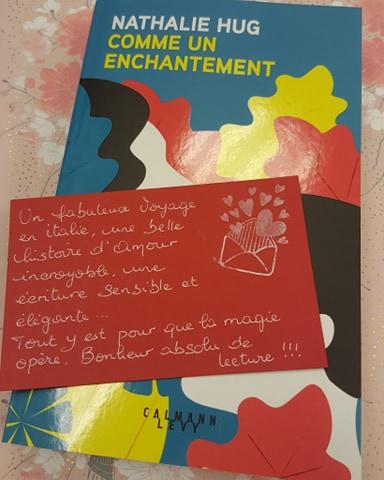 NATHALIE HUG
COMME UN
ENCHANTEMENT
Un fabuleux voyage
en italie, une belle
histoire d'amour
incroyable, une
écriture sensible et
élégante...
Tout y est pour que la magie
opère. Bonheur absolu de
lecture !!!
CALMANN
LEVY